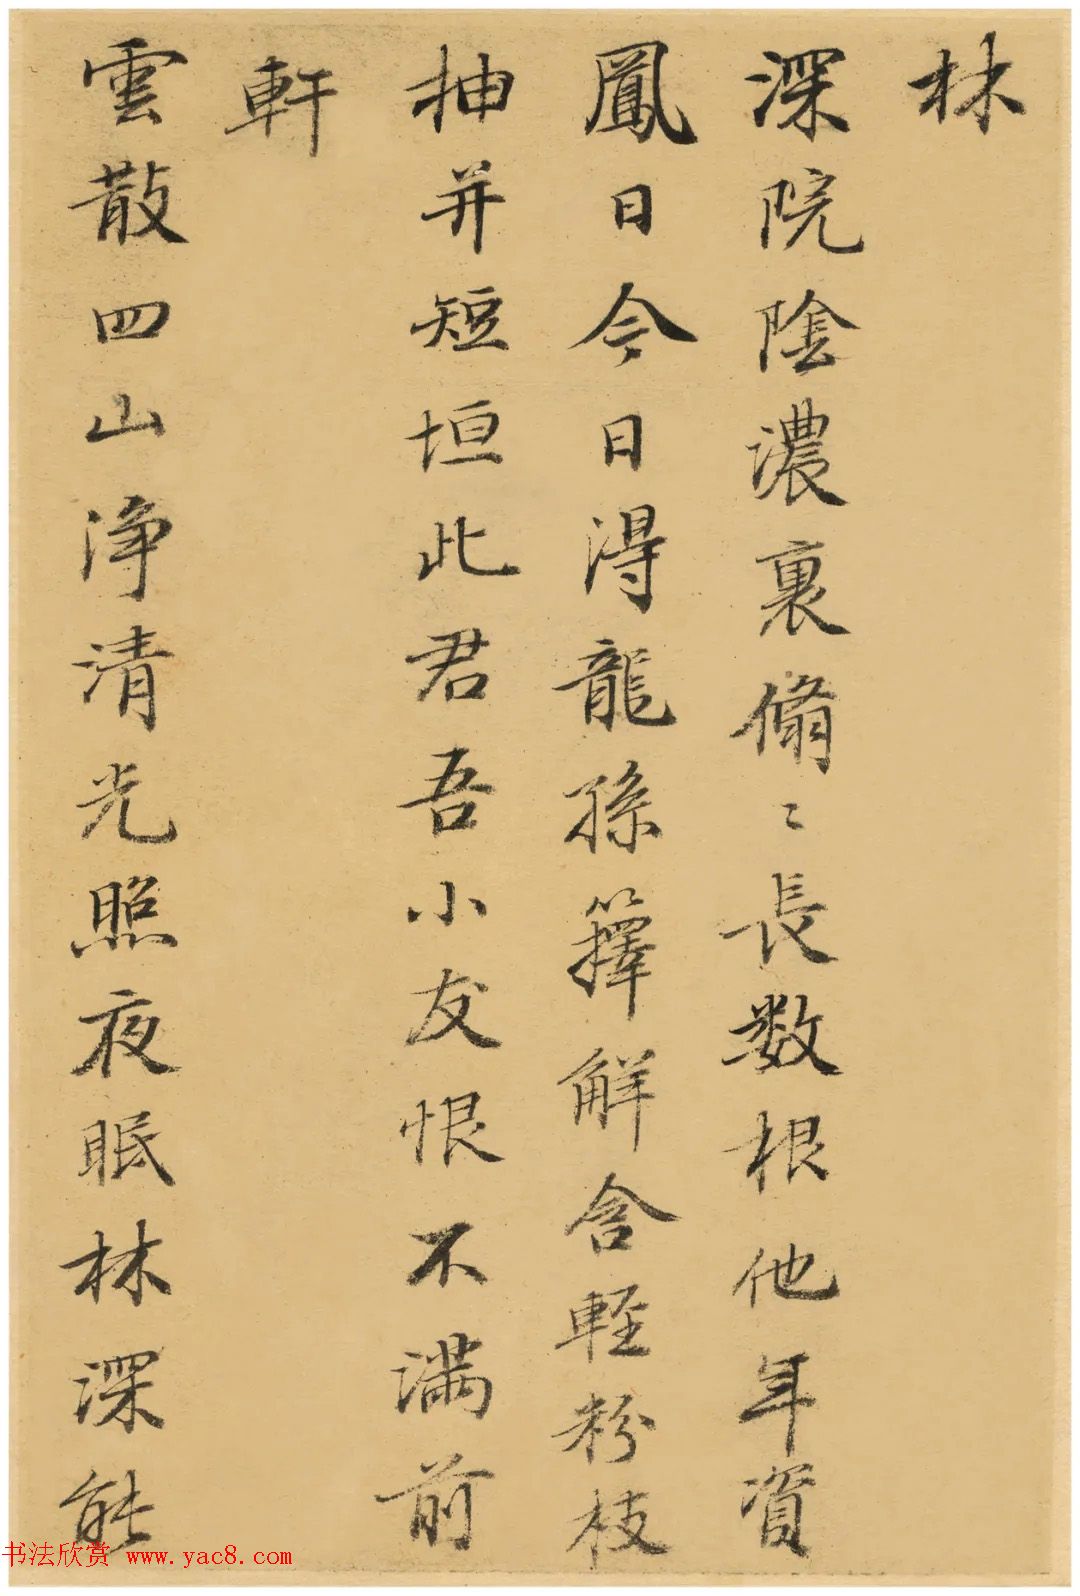 林
深院陰濃裏脩〻長数根他年資
鳳日今日得龍孫籜解含輕粉枝
抽并短垣此君吾小友恨不满前
軒
雲散四山净清光照夜眠林深能
书法欣赏 www.yac8.com